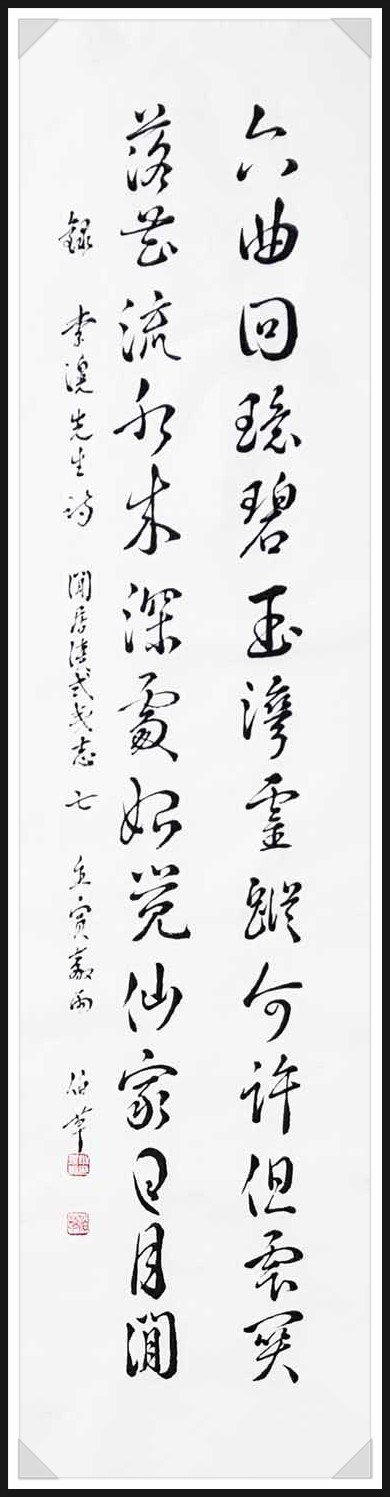 六曲回環碧玉灣霊蹤何許但雲関
落花流水來深處始覺仙家日月閒
錄 李滉先生詩 閒居讀武夷志 七 壬寅穀雨